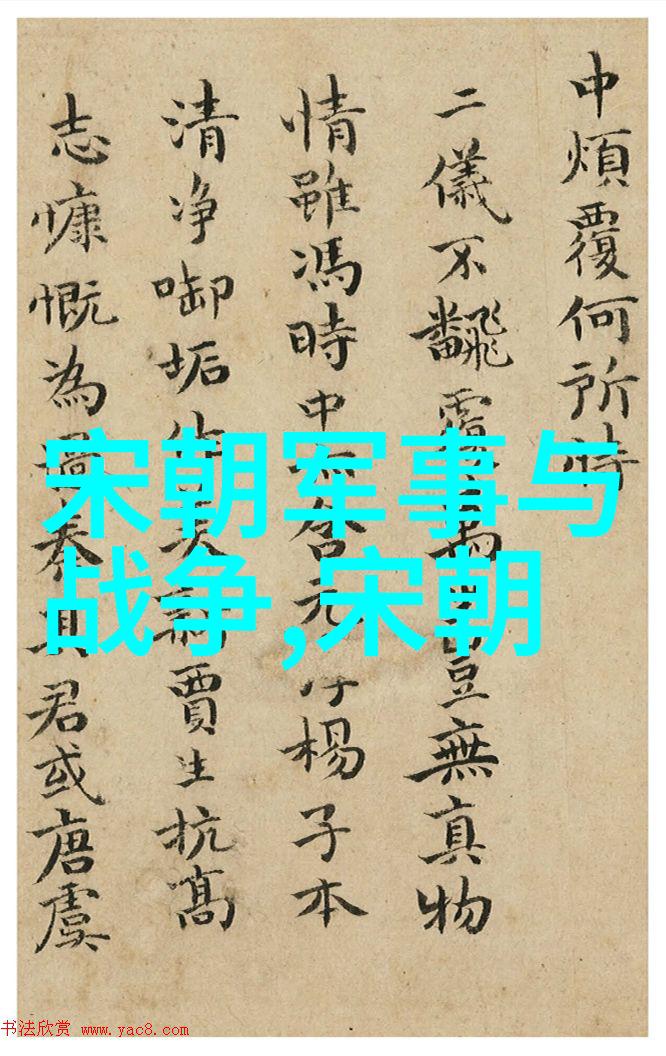 中煩覆何所
二儀不飜覆無真物
情雖馮時中含元楊子本
清净啣垢賈生抗高
志慷慨為奉其君或唐虞
宋朝军事与
战争,宋朝
书法欣赏 www.yac8.com